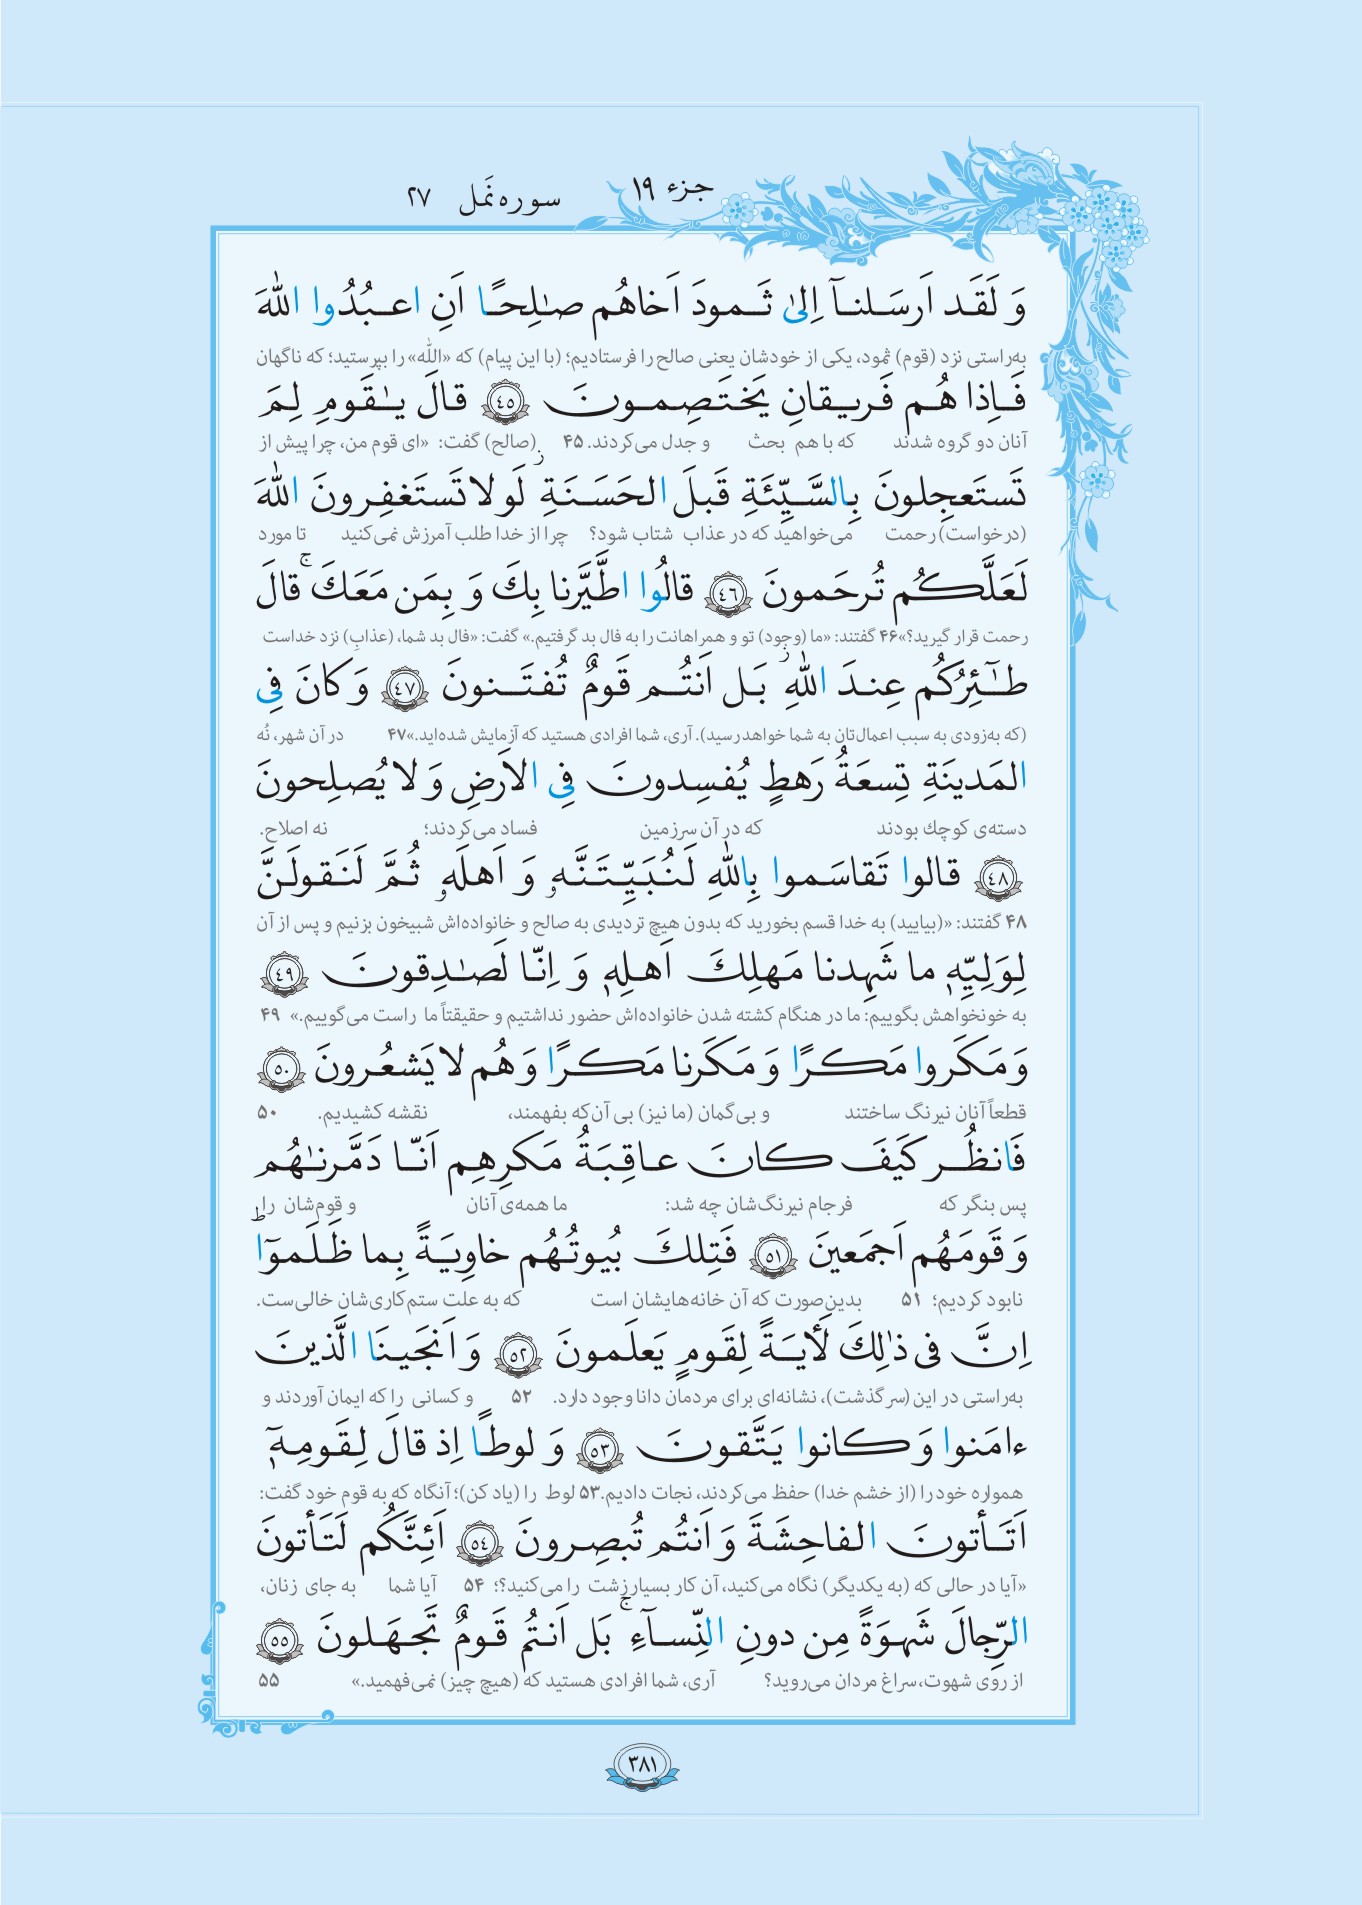 جزء ۱۹ سوره نَمل ۲۷
وَ لَقَد اَرسَلنآ اِلىٰ ثَمودَ اَخاهُم صٰلِحًا اَنِ اعبُدُوا اللهَ
به‌راستی نزد (قوم) ثمود، یکی از خودشان یعنی صالح را فرستادیم؛ (با این پیام) که «اللّٰه» را بپرستید؛ که ناگهان
فَاِذا هُم فَريقانِ يَختَصِمونَ ٤٥ قالَ يٰقَومِ لِمَ
آنان دو گروه شدند که با هم بحث و جدل می‌کردند. ۴۵ (صالح) گفت: «ای قوم من، چرا پیش از
تَستَعجِلونَ بِالسَّيِّئَةِ قَبلَ الحَسَنَةِ ز لَولا تَستَغفِرونَ اللهَ
(درخواست) رحمت می‌خواهید که در عذاب شتاب شود؟ چرا از خدا طلب آمرزش نمی‌کنید تا مورد
لَعَلَّكُم تُرحَمونَ ٤٦ قالُوا اطَّيَّرنا بِكَ وَ بِمَن مَعَكَ ج قالَ
رحمت قرار گیرید؟» ۴۶ گفتند: «ما (وجود) تو و همراهانت را به فال بد گرفتیم.» گفت: «فال بد شما، (عذابِ) نزد خداست
طٰٓئِرُكُم عِندَ اللهِ ز بَل اَنتُم قَومٌ تُفتَنونَ ٤٧ وَ كانَ فِى
(که به‌زودی به سبب اعمال‌تان به شما خواهد رسید). آری، شما افرادی هستید که آزمایش شده‌اید.» ۴۷ در آن شهر، نُه
المَدينَةِ تِسعَةُ رَهطٍ يُفسِدونَ فِى الاَرضِ وَ لا يُصلِحونَ
دسته‌ی کوچک بودند که در آن سرزمین فساد می‌کردند؛ نه اصلاح.
٤٨ قالوا تَقاسَموا بِاللهِ لَنُبَيِّتَنَّهو وَ اَهلَهو ثُمَّ لَنَقولَنَّ
۴۸ گفتند: «(بیایید) به خدا قسم بخورید که بدون هیچ تردیدی به صالح و خانواده‌اش شبیخون بزنیم و پس از آن
لِوَلِيِّهٖ ما شَهِدنا مَهلِكَ اَهلِهٖ وَ اِنّا لَصٰدِقونَ ٤٩
به خونخواهش بگوییم: ما در هنگام کشته شدن خانواده‌اش حضور نداشتیم و حقیقتاً ما راست می‌گوییم.» ۴۹
وَ مَكَروا مَكرًا وَ مَكَرنا مَكرًا وَ هُم لا يَشعُرونَ ٥٠
قطعاً آنان نیرنگ ساختند و بی‌گمان (ما نیز) بی آن‌که بفهمند، نقشه کشیدیم. ۵۰
فَانظُر كَيفَ كانَ عاقِبَةُ مَكرِهِم اَنّا دَمَّرنٰهُم
پس بنگر که فرجام نیرنگ‌شان چه شد: ما همه‌ی آنان و قوم‌شان را
وَ قَومَهُم اَجمَعينَ ٥١ فَتِلكَ بُيوتُهُم خاوِيَةً بِما ظَلَموٓا ط
نابود کردیم؛ ۵۱ بدین‌صورت که آن خانه‌هایشان است که به علت ستم‌کاری‌شان خالی‌ست.
اِنَّ فى ذٰلِكَ لَأٰيَةً لِقَومٍ يَعلَمونَ ٥٢ وَ اَنجَينَا الَّذينَ
به‌راستی در این (سرگذشت)، نشانه‌ای برای مردمان دانا وجود دارد. ۵۲ و کسانی را که ایمان آوردند و
ءامَنوا وَ كانوا يَتَّقونَ ٥٣ وَ لوطًا اِذ قالَ لِقَومِهٖٓ
همواره خود را (از خشم خدا) حفظ می‌کردند، نجات دادیم. ۵۳ لوط را (یاد کن)؛ آنگاه که به قوم خود گفت:
اَتَأتونَ الفاحِشَةَ وَ اَنتُم تُبصِرونَ ٥٤ اَئِنَّكُم لَتَأتونَ
«آیا در حالی که (به یکدیگر) نگاه می‌کنید، آن کار بسیار زشت را می‌کنید؟؛ ۵۴ آیا شما به جای زنان،
الرِّجالَ شَهوَةً مِن دونِ النِّسآءِ ج بَل اَنتُم قَومٌ تَجهَلونَ ٥٥
از روی شهوت، سراغ مردان می‌روید؟ آری، شما افرادی هستید که (هیچ چیز) نمی‌فهمید.» ۵۵
۳۸۱